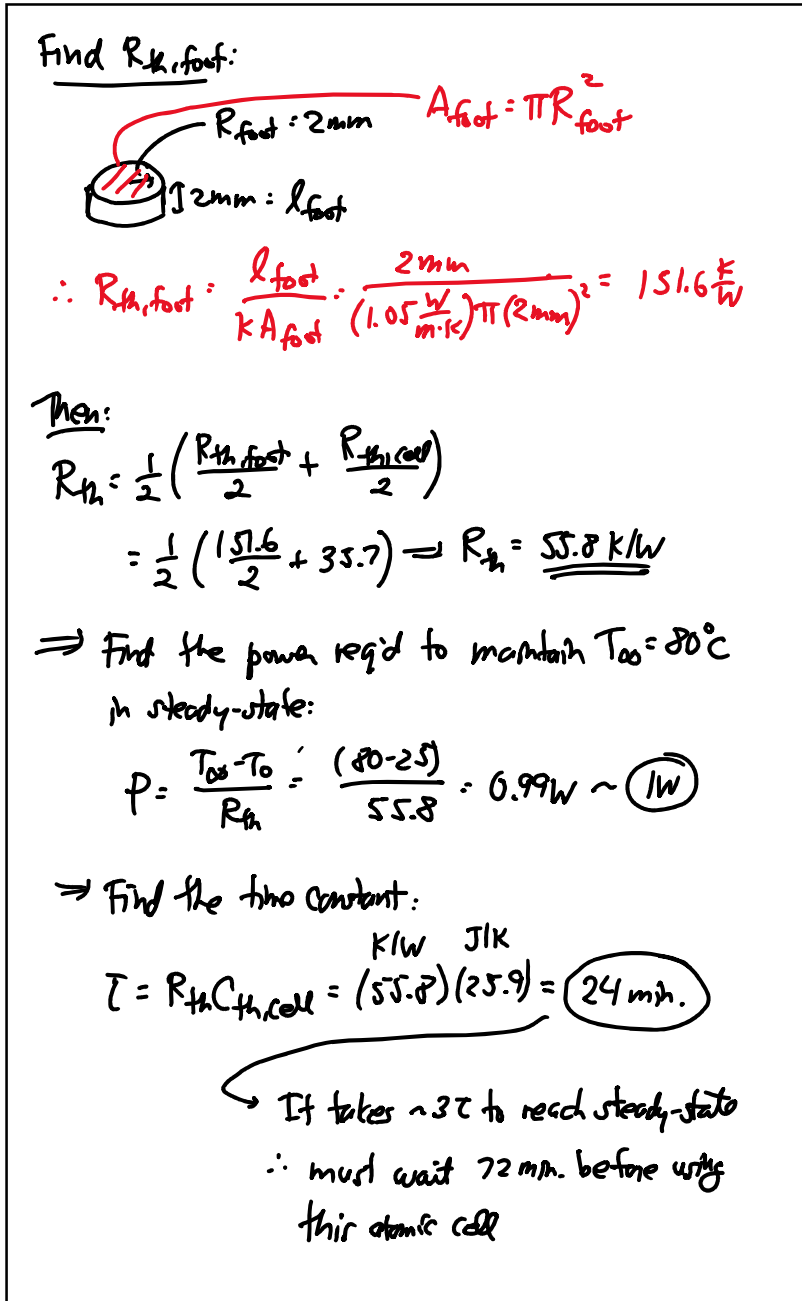 Find R_th,foot:
A_foot = πR_foot²
R_foot = 2mm
2mm = l_foot
∴ R_th,foot = l_foot / (k A_foot) = 2mm / ((1.05 W/m·K) π(2mm)²) = 151.6 K/W
Then:
R_th = 1/2 (R_th,foot/2 + R_th,cell/2)
= 1/2 (151.6/2 + 35.7) → R_th = 55.8 K/W
⇒ Find the power req'd to maintain T_∞ = 80°C
in steady-state:
P = (T_∞ - T_0)/R_th = (80-25)/55.8 = 0.99W ~ 1W
⇒ Find the time constant:
K/W J/K
τ = R_th C_th,cell = (55.8)(25.9) = 24 min.
It takes ~3τ to reach steady-state
∴ must wait 72 min. before using
this atomic cell